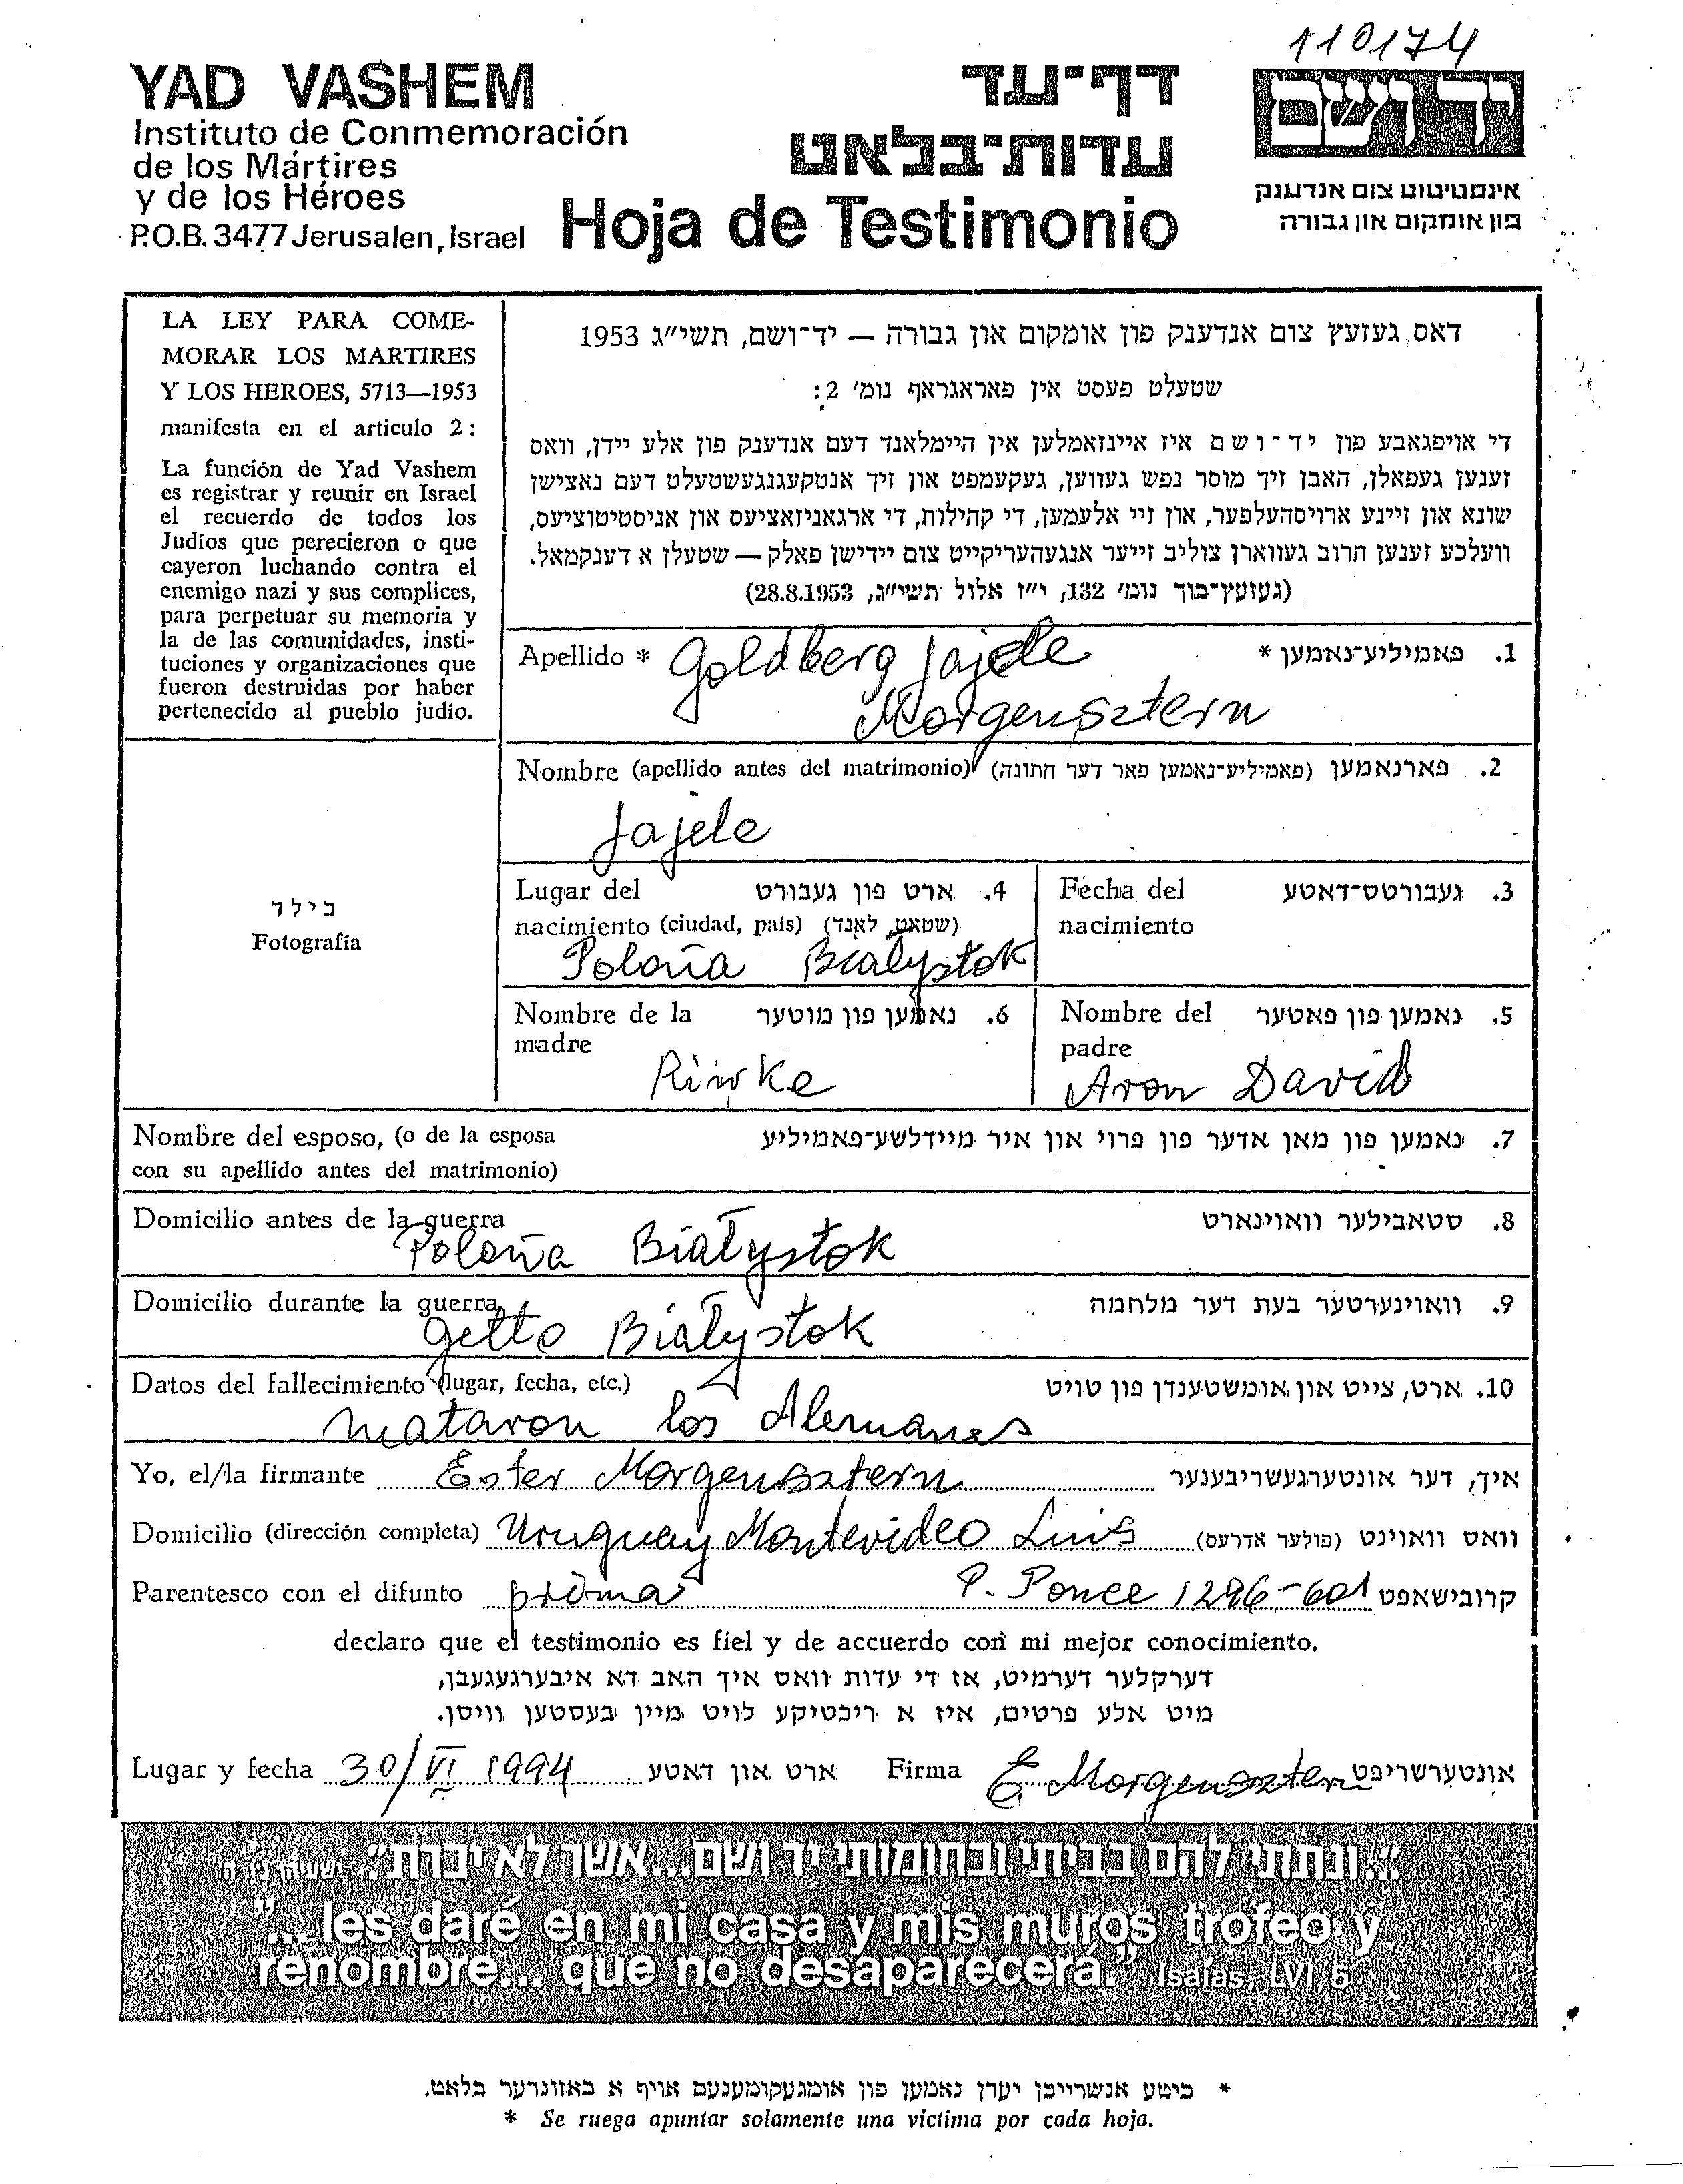 110174
YAD VASHEM
Instituto de Conmemoración
de los Mártires
y de los Héroes
P.O.B. 3477 Jerusalen, Israel
דף־עד
עדות־בלאט
Hoja de Testimonio
יד ושם
אינסטיטוט צום אנדענק
פון אומקום און גבורה
LA LEY PARA COME-
MORAR LOS MARTIRES
Y LOS HEROES, 5713—1953
manifesta en el articulo 2:
La función de Yad Vashem
es registrar y reunir en Israel
el recuerdo de todos los
Judios que perecieron o que
cayeron luchando contra el
enemigo nazi y sus complices,
para perpetuar su memoria y
la de las comunidades, insti-
tuciones y organizaciones que
fueron destruidas por haber
pertenecido al pueblo judio.
דאס געזעץ צום אנדענק פון אומקום און גבורה — יד־ושם, תשי״ג 1953
שטעלט פעסט אין פאראגראף נומ׳ 2:
די אויפגאבע פון יד־ושם איז איינזאמלען אין היימלאנד דעם אנדענק פון אלע יידן, וואס
זענען געפאלן, האבן זיך מוסר נפש געווען, געקעמפט און זיך אנטקעגנגעשטעלט דעם נאצישן
שונא און זיינע ארויסהעלפער, און זיי אלעמען, די קהילות, די ארגאניזאציעס און אניסטיטוציעס,
וועלכע זענען חרוב געווארן צוליב זייער אנגעהעריקייט צום יידישן פאלק — שטעלן א דענקמאל.
(געזעץ־בוך נומ׳ 132, י״ז אלול תשי״ג, 28.8.1953)
Apellido * Goldberg Jajele פאמיליע־נאמען * .1
Morgensztern
Nombre (apellido antes del matrimonio) פארנאמען (פאמיליע־נאמען פאר דער חתונה) .2
Jajele
Lugar del ארט פון געבורט .4
nacimiento (ciudad, pais) (שטאט, לאנד)
Polonia Białystok
Fecha del געבורטס־דאטע .3
nacimiento
Nombre de la נאמען פון מוטער .6
madre
Riwke
Nombre del נאמען פון פאטער .5
padre
Aron David
בילד
Fotografía
Nombre del esposo, (o de la esposa נאמען פון מאן אדער פון פרוי און איר מיידלשע־פאמיליע .7
con su apellido antes del matrimonio)
Domicilio antes de la guerra סטאבילער וואוינארט .8
Polonia Białystok
Domicilio durante la guerra וואוינערטער בעת דער מלחמה .9
getto Białystok
Datos del fallecimiento (lugar, fecha, etc.) ארט, צייט און אומשטענדן פון טויט .10
mataron los Alemanes
Yo, el/la firmante Ester Morgensztern איך, דער אונטערגעשריבענער
Domicilio (dirección completa) Uruguay Montevideo Luis וואס וואוינט (פולער אדרעס)
Parentesco con el difunto prima P. Ponce 1286-601 קרובישאפט
declaro que el testimonio es fiel y de accuerdo con mi mejor conocimiento.
דערקלער דערמיט, אז די עדות וואס איך האב דא איבערגעגעבן,
מיט אלע פרטים, איז א ריכטיקע לויט מיין בעסטען וויסן.
Lugar y fecha 30/VI 1994 ארט און דאטע Firma E. Morgensztern אונטערשריפט
״...ונתתי להם בביתי ובחומותי יד ושם...אשר לא יכרת״. ישעיהו נו ה
"... les daré en mi casa y mis muros trofeo y
renombre... que no desaparecerá." Isaias, LVI, 5
* ביטע אנשרייבן יעדן נאמען פון אומגעקומענעם אויף א באזונדער בלאט.
* Se ruega apuntar solamente una victima por cada hoja.